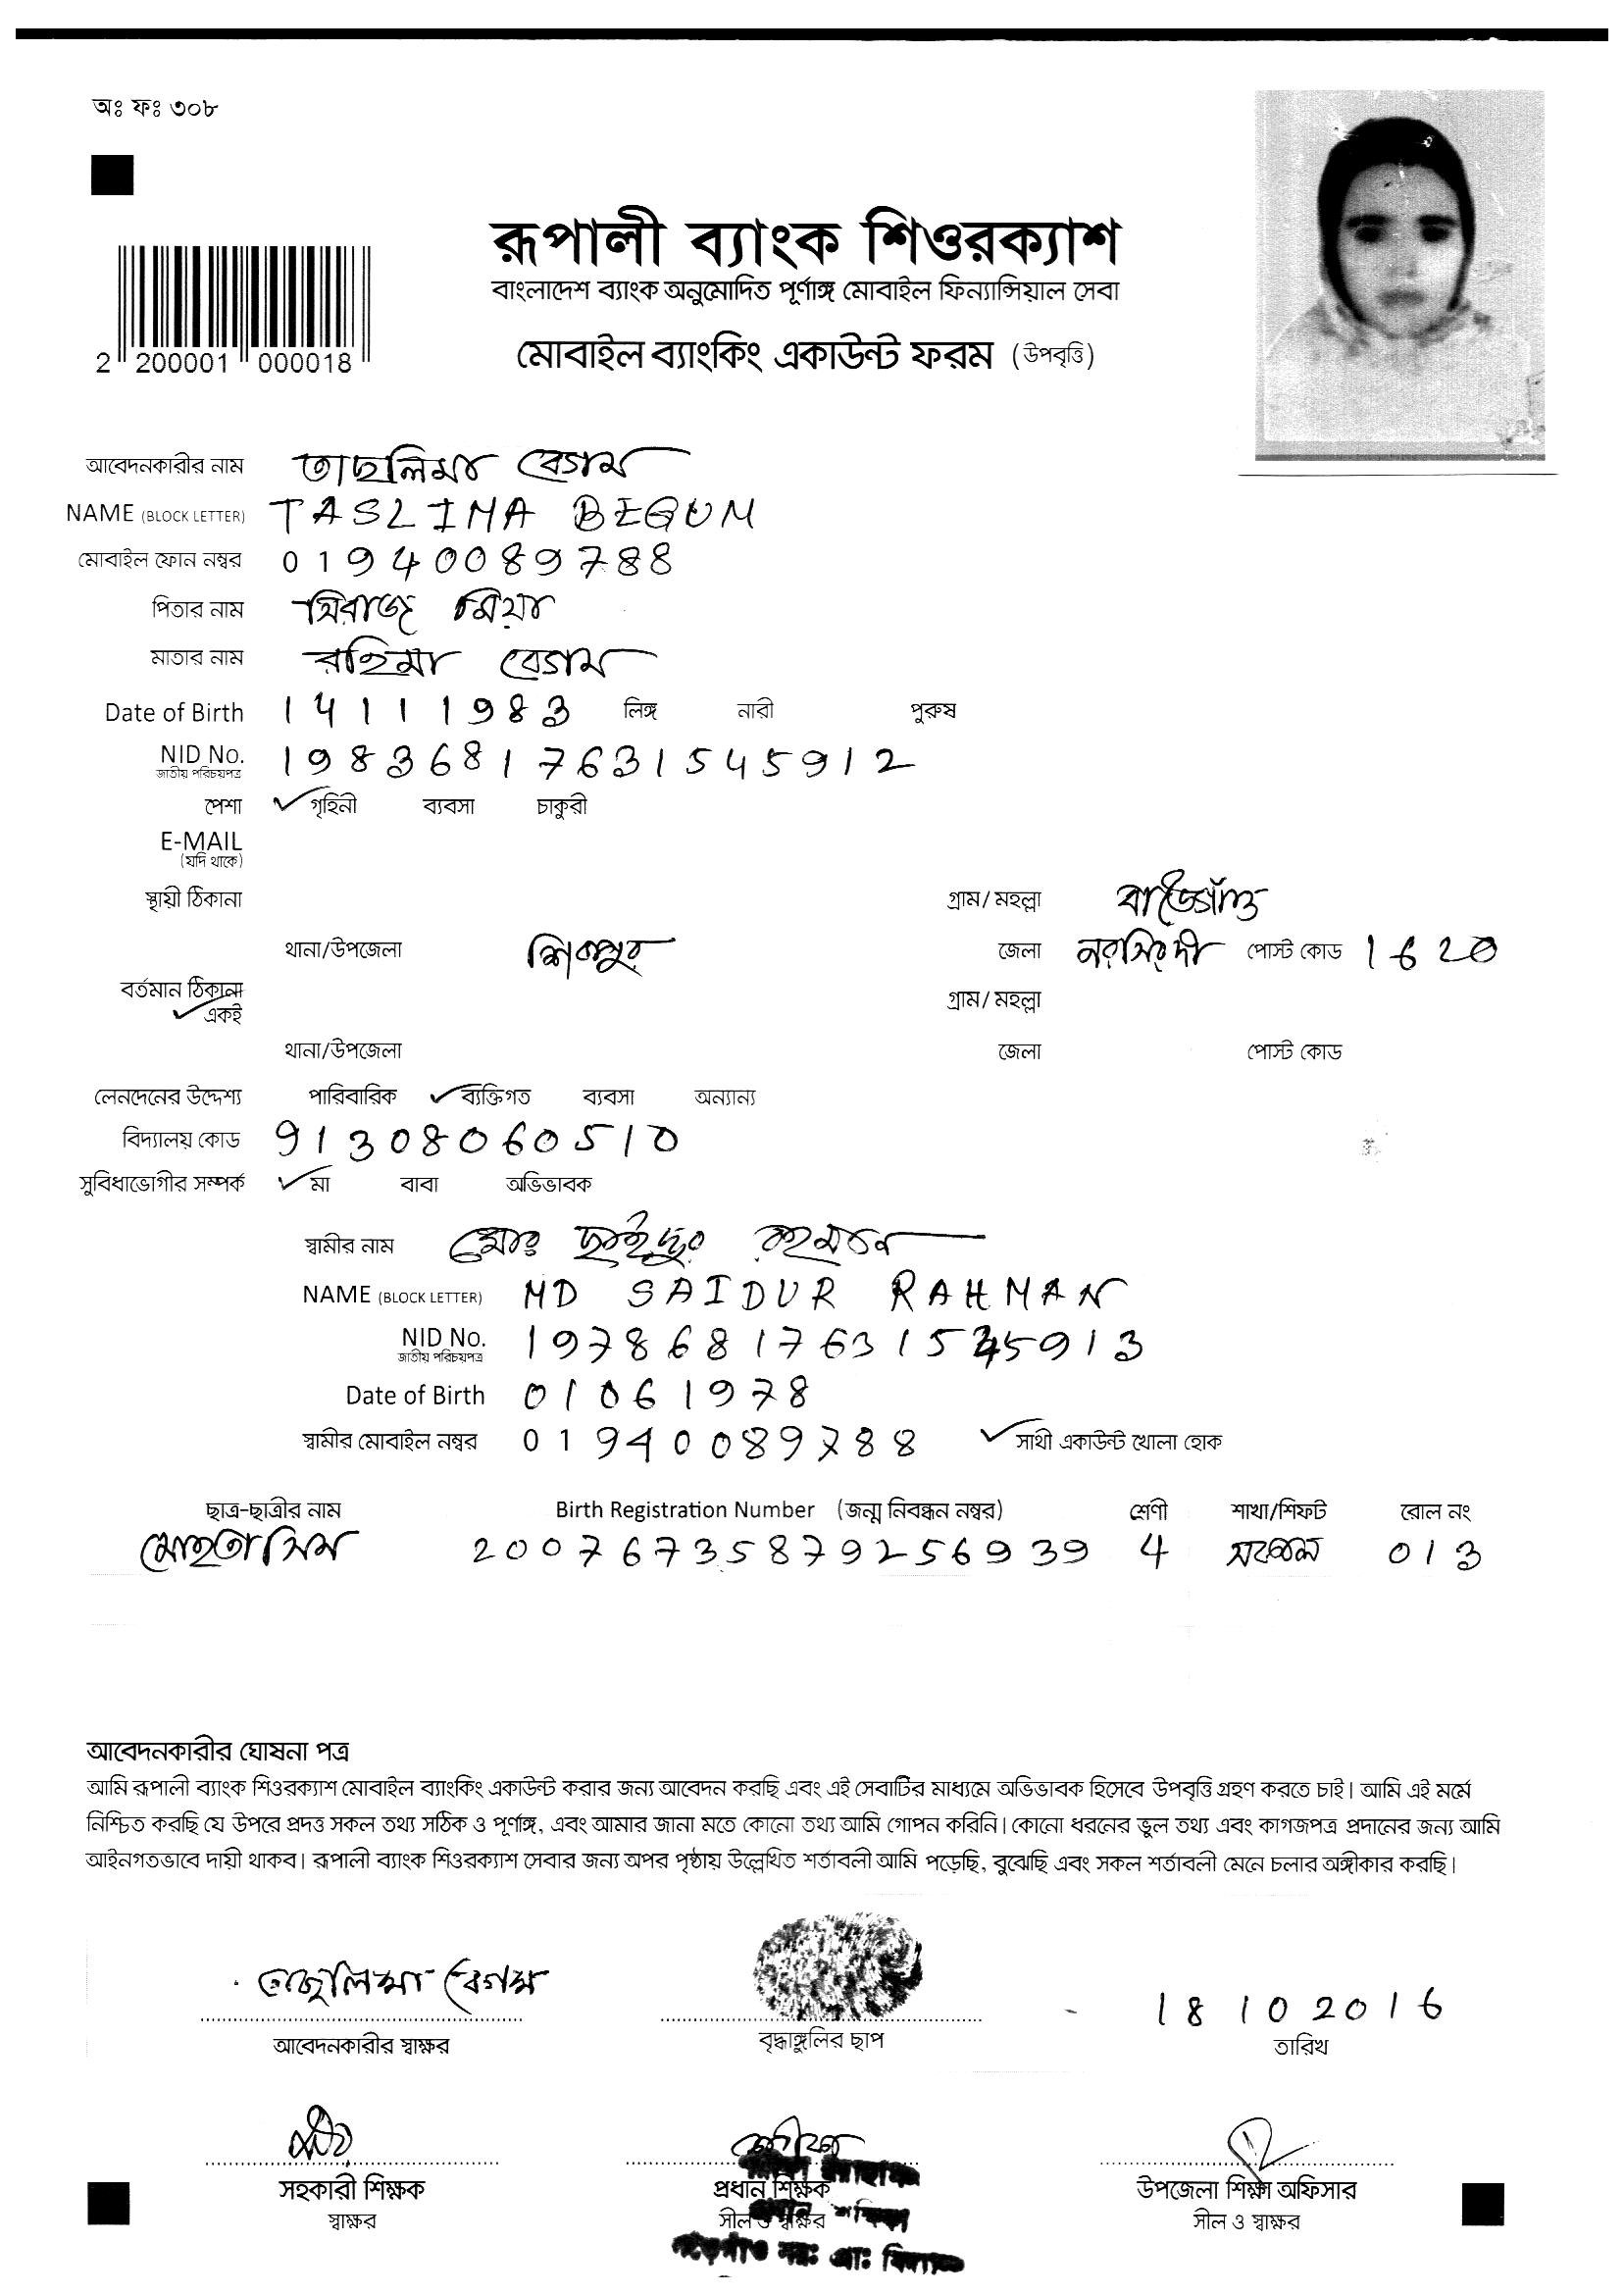 অঃ ফঃ ৩০৮
রূপালী ব্যাংক শিওরক্যাশ
বাংলাদেশ ব্যাংক অনুমোদিত পূর্ণাঙ্গ মোবাইল ফিন্যান্সিয়াল সেবা
মোবাইল ব্যাংকিং একাউন্ট ফরম (উপবৃত্তি)
2 200001 000018
আবেদনকারীর নাম তাছলিমা বেগম
NAME (BLOCK LETTER) TASLIMA BEGUM
মোবাইল ফোন নম্বর 01940089788
পিতার নাম সিরাজ মিয়া
মাতার নাম রহিমা বেগম
Date of Birth 14111983 লিঙ্গ নারী পুরুষ
NID No. 19836817631545912
জাতীয় পরিচয়পত্র
পেশা গৃহিনী ব্যবসা চাকুরী
E-MAIL
(যদি থাকে)
স্থায়ী ঠিকানা গ্রাম/ মহল্লা
থানা/উপজেলা শিবপুর জেলা নরসিংদী পোস্ট কোড 1620
বর্তমান ঠিকানা গ্রাম/ মহল্লা
একই
থানা/উপজেলা জেলা পোস্ট কোড
লেনদেনের উদ্দেশ্য পারিবারিক ব্যক্তিগত ব্যবসা অন্যান্য
বিদ্যালয় কোড 91308060510
সুবিধাভোগীর সম্পর্ক মা বাবা অভিভাবক
স্বামীর নাম মোঃ ছাইদুর রহমান
NAME (BLOCK LETTER) MD SAIDUR RAHMAN
NID No.
জাতীয় পরিচয়পত্র
Date of Birth 01061978
স্বামীর মোবাইল নম্বর 01940089788 সাথী একাউন্ট খোলা হোক
ছাত্র-ছাত্রীর নাম Birth Registration Number (জন্ম নিবন্ধন নম্বর) শ্রেণী শাখা/শিফট রোল নং
মোহতাসিম 20076735879256939 4 013
আবেদনকারীর ঘোষনা পত্র
আমি রূপালী ব্যাংক শিওরক্যাশ মোবাইল ব্যাংকিং একাউন্ট করার জন্য আবেদন করছি এবং এই সেবাটির মাধ্যমে অভিভাবক হিসেবে উপবৃত্তি গ্রহণ করতে চাই। আমি এই মর্মে
নিশ্চিত করছি যে উপরে প্রদত্ত সকল তথ্য সঠিক ও পূর্ণাঙ্গ, এবং আমার জানা মতে কোনো তথ্য আমি গোপন করিনি। কোনো ধরনের ভুল তথ্য এবং কাগজপত্র প্রদানের জন্য আমি
আইনগতভাবে দায়ী থাকব। রূপালী ব্যাংক শিওরক্যাশ সেবার জন্য অপর পৃষ্ঠায় উল্লেখিত শর্তাবলী আমি পড়েছি, বুঝেছি এবং সকল শর্তাবলী মেনে চলার অঙ্গীকার করছি।
তাছলিমা বেগম 18 10 2016
আবেদনকারীর স্বাক্ষর বৃদ্ধাঙ্গুলির ছাপ তারিখ
সহকারী শিক্ষক প্রধান শিক্ষক উপজেলা শিক্ষা অফিসার
স্বাক্ষর সীল ও স্বাক্ষর সীল ও স্বাক্ষর